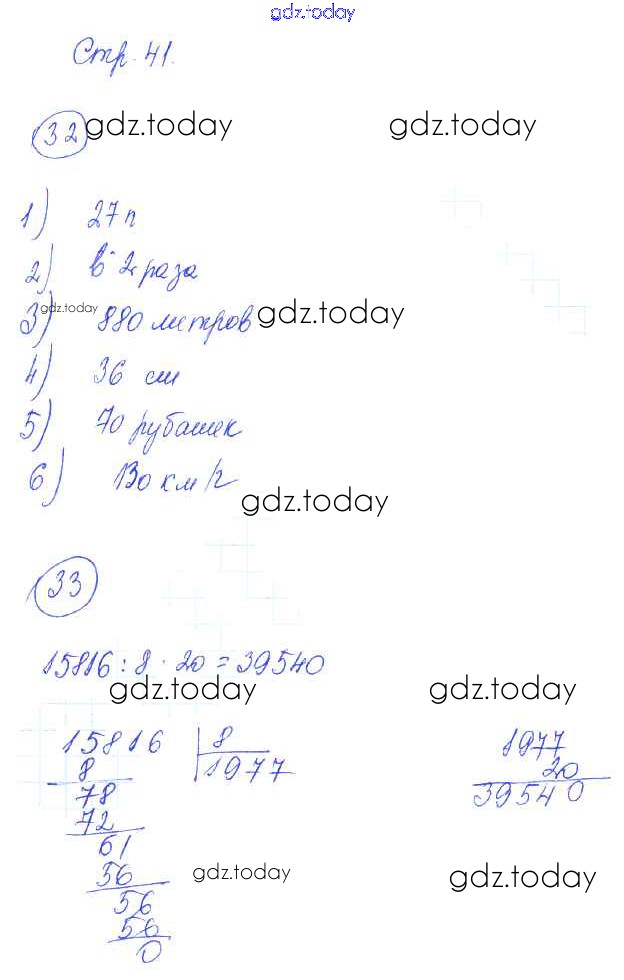 gdz.today
Стр. 41.
32 gdz.today gdz.today
1) 27 п
2) в 2 раза
gdz.today
3) 880 метров gdz.today
4) 36 см
5) 70 рубашек
6) 130 км/ч
gdz.today
33
15816 : 8 · 20 = 39540
gdz.today gdz.today
15816 8 1977
8 1977 20
78 39540
72
61
56 gdz.today gdz.today
56
56
0